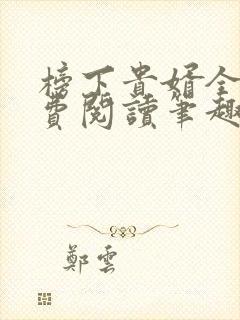 榜下貴婿全
費閱讀筆趣
鄭雲